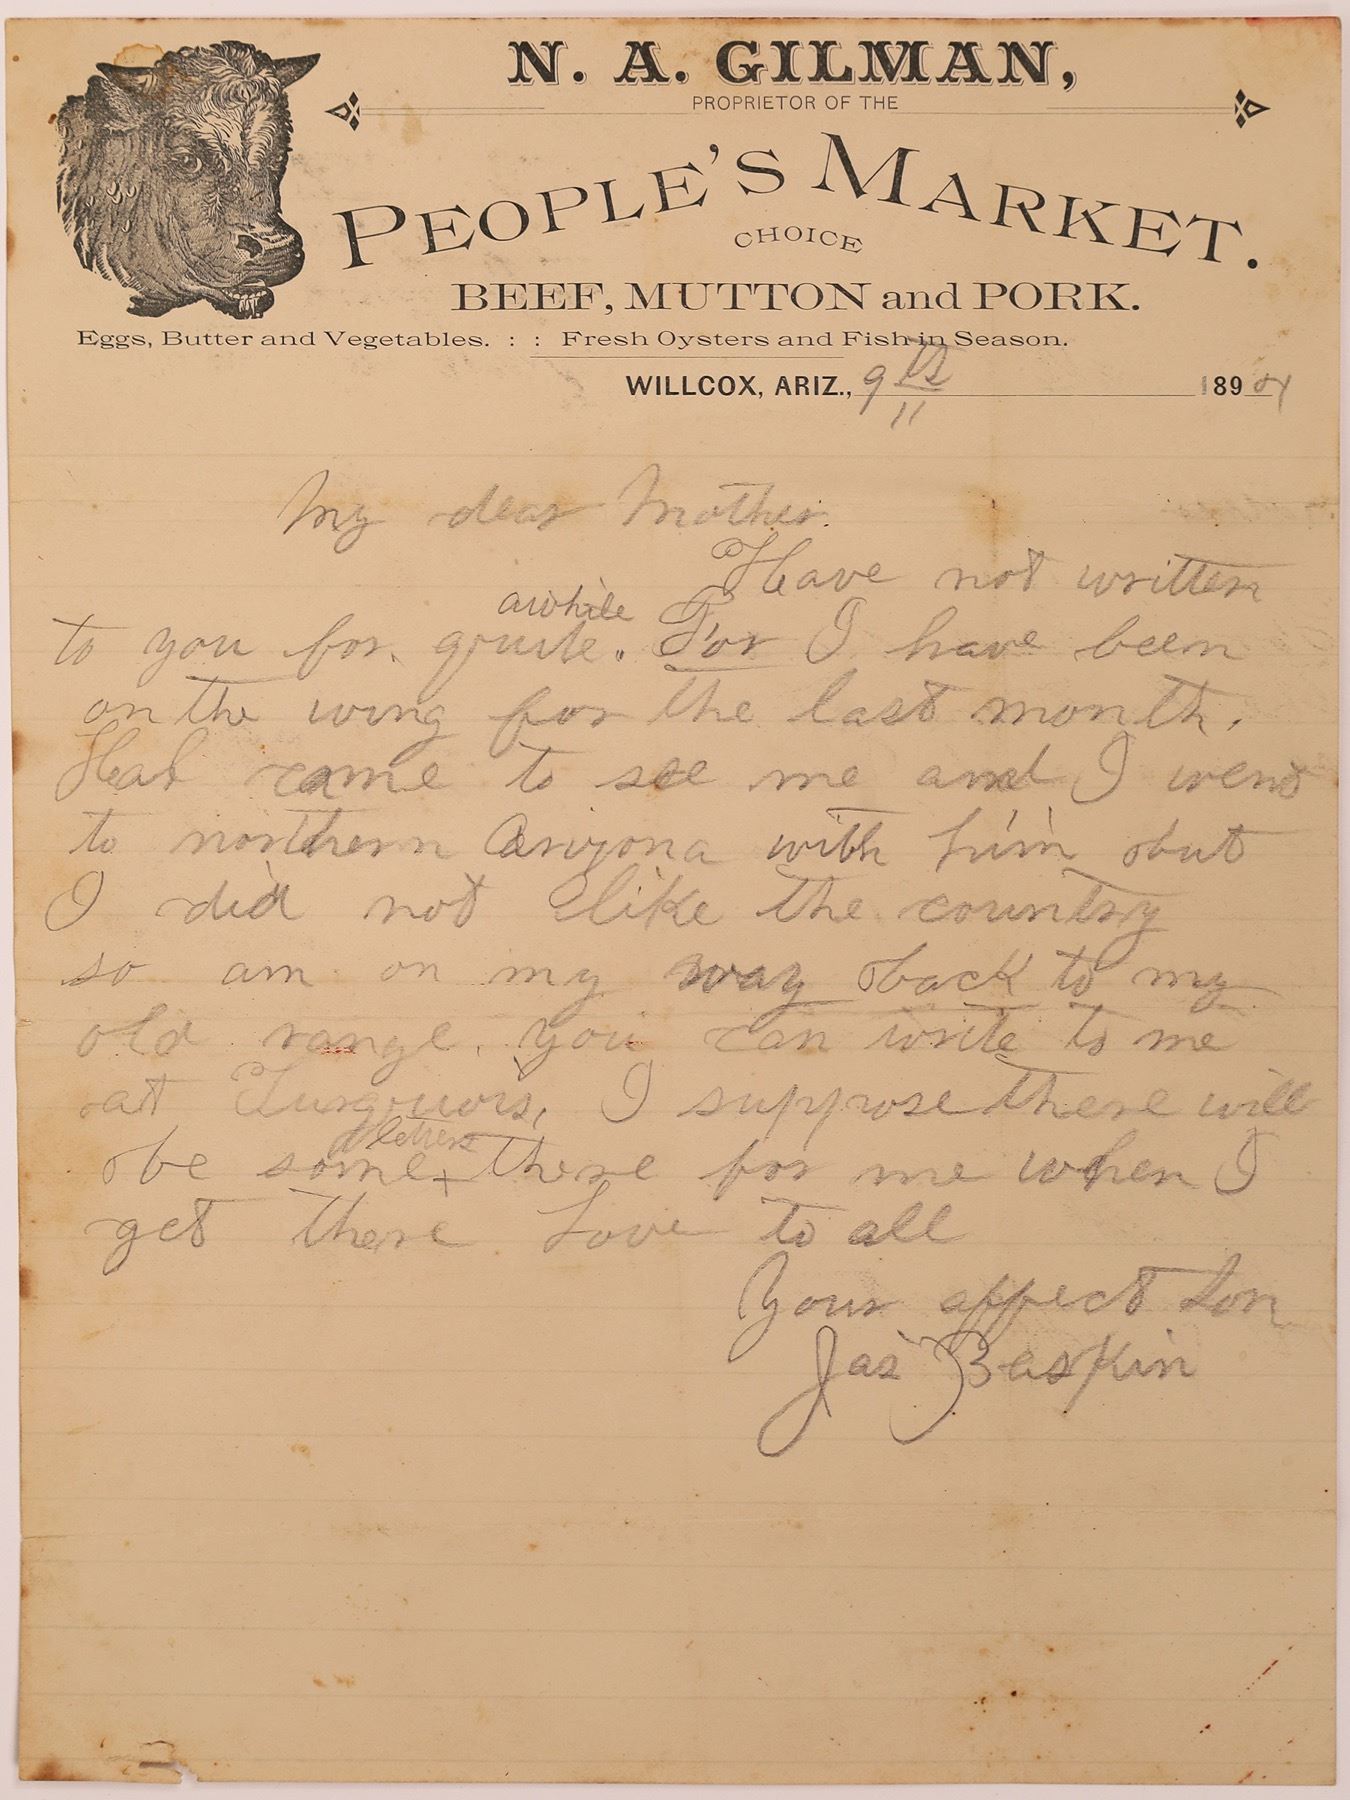 N. A. GILMAN,
PROPRIETOR OF THE
PEOPLE'S MARKET.
CHOICE
BEEF, MUTTON and PORK.
Eggs, Butter and Vegetables. : : Fresh Oysters and Fish in Season.
WILLCOX, ARIZ., 9th 11 189
My dear Mother.
Have not written
awhile
to you for quite. For I have been
on the wing for the last month.
Hal came to see me and I went
to northern Arizona with him but
I did not like the country
so am on my way back to my
old range. you can write to me
at I suppose there will
letters
be some + there for me when I
get there Love to all
Your affect Son
Jas Baskin